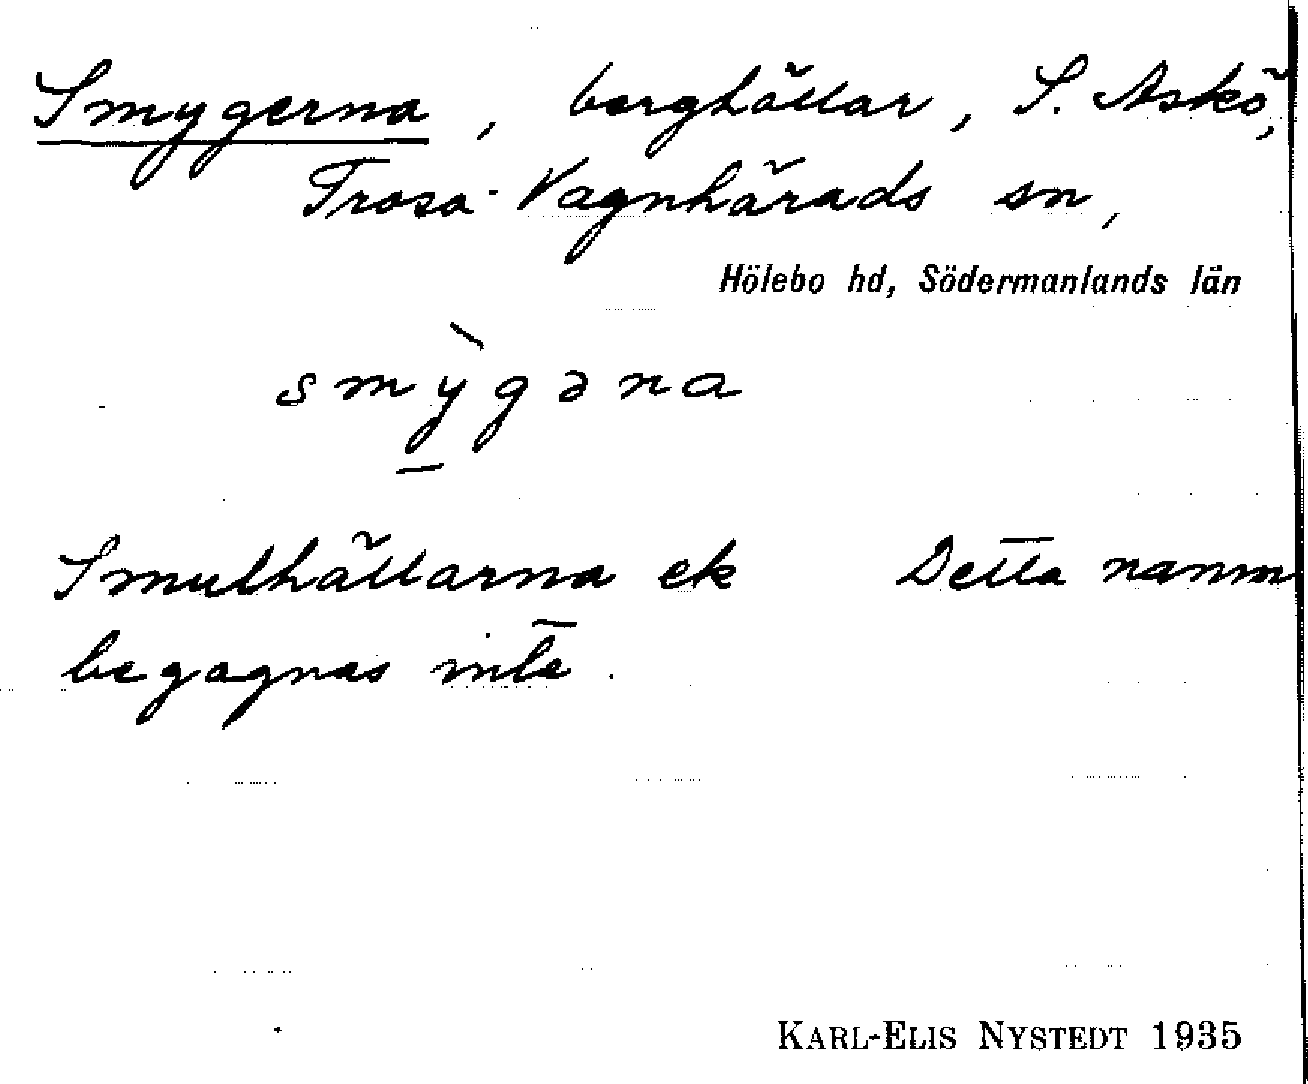 Smygerna, berghällar, S. Askö,
Trosa-Vagnhärads sn,
Hölebo hd, Södermanlands län
smỳ̱gəna
Smulhällarna ek Detta namn
begagnas inte.
KARL-ELIS NYSTEDT 1935